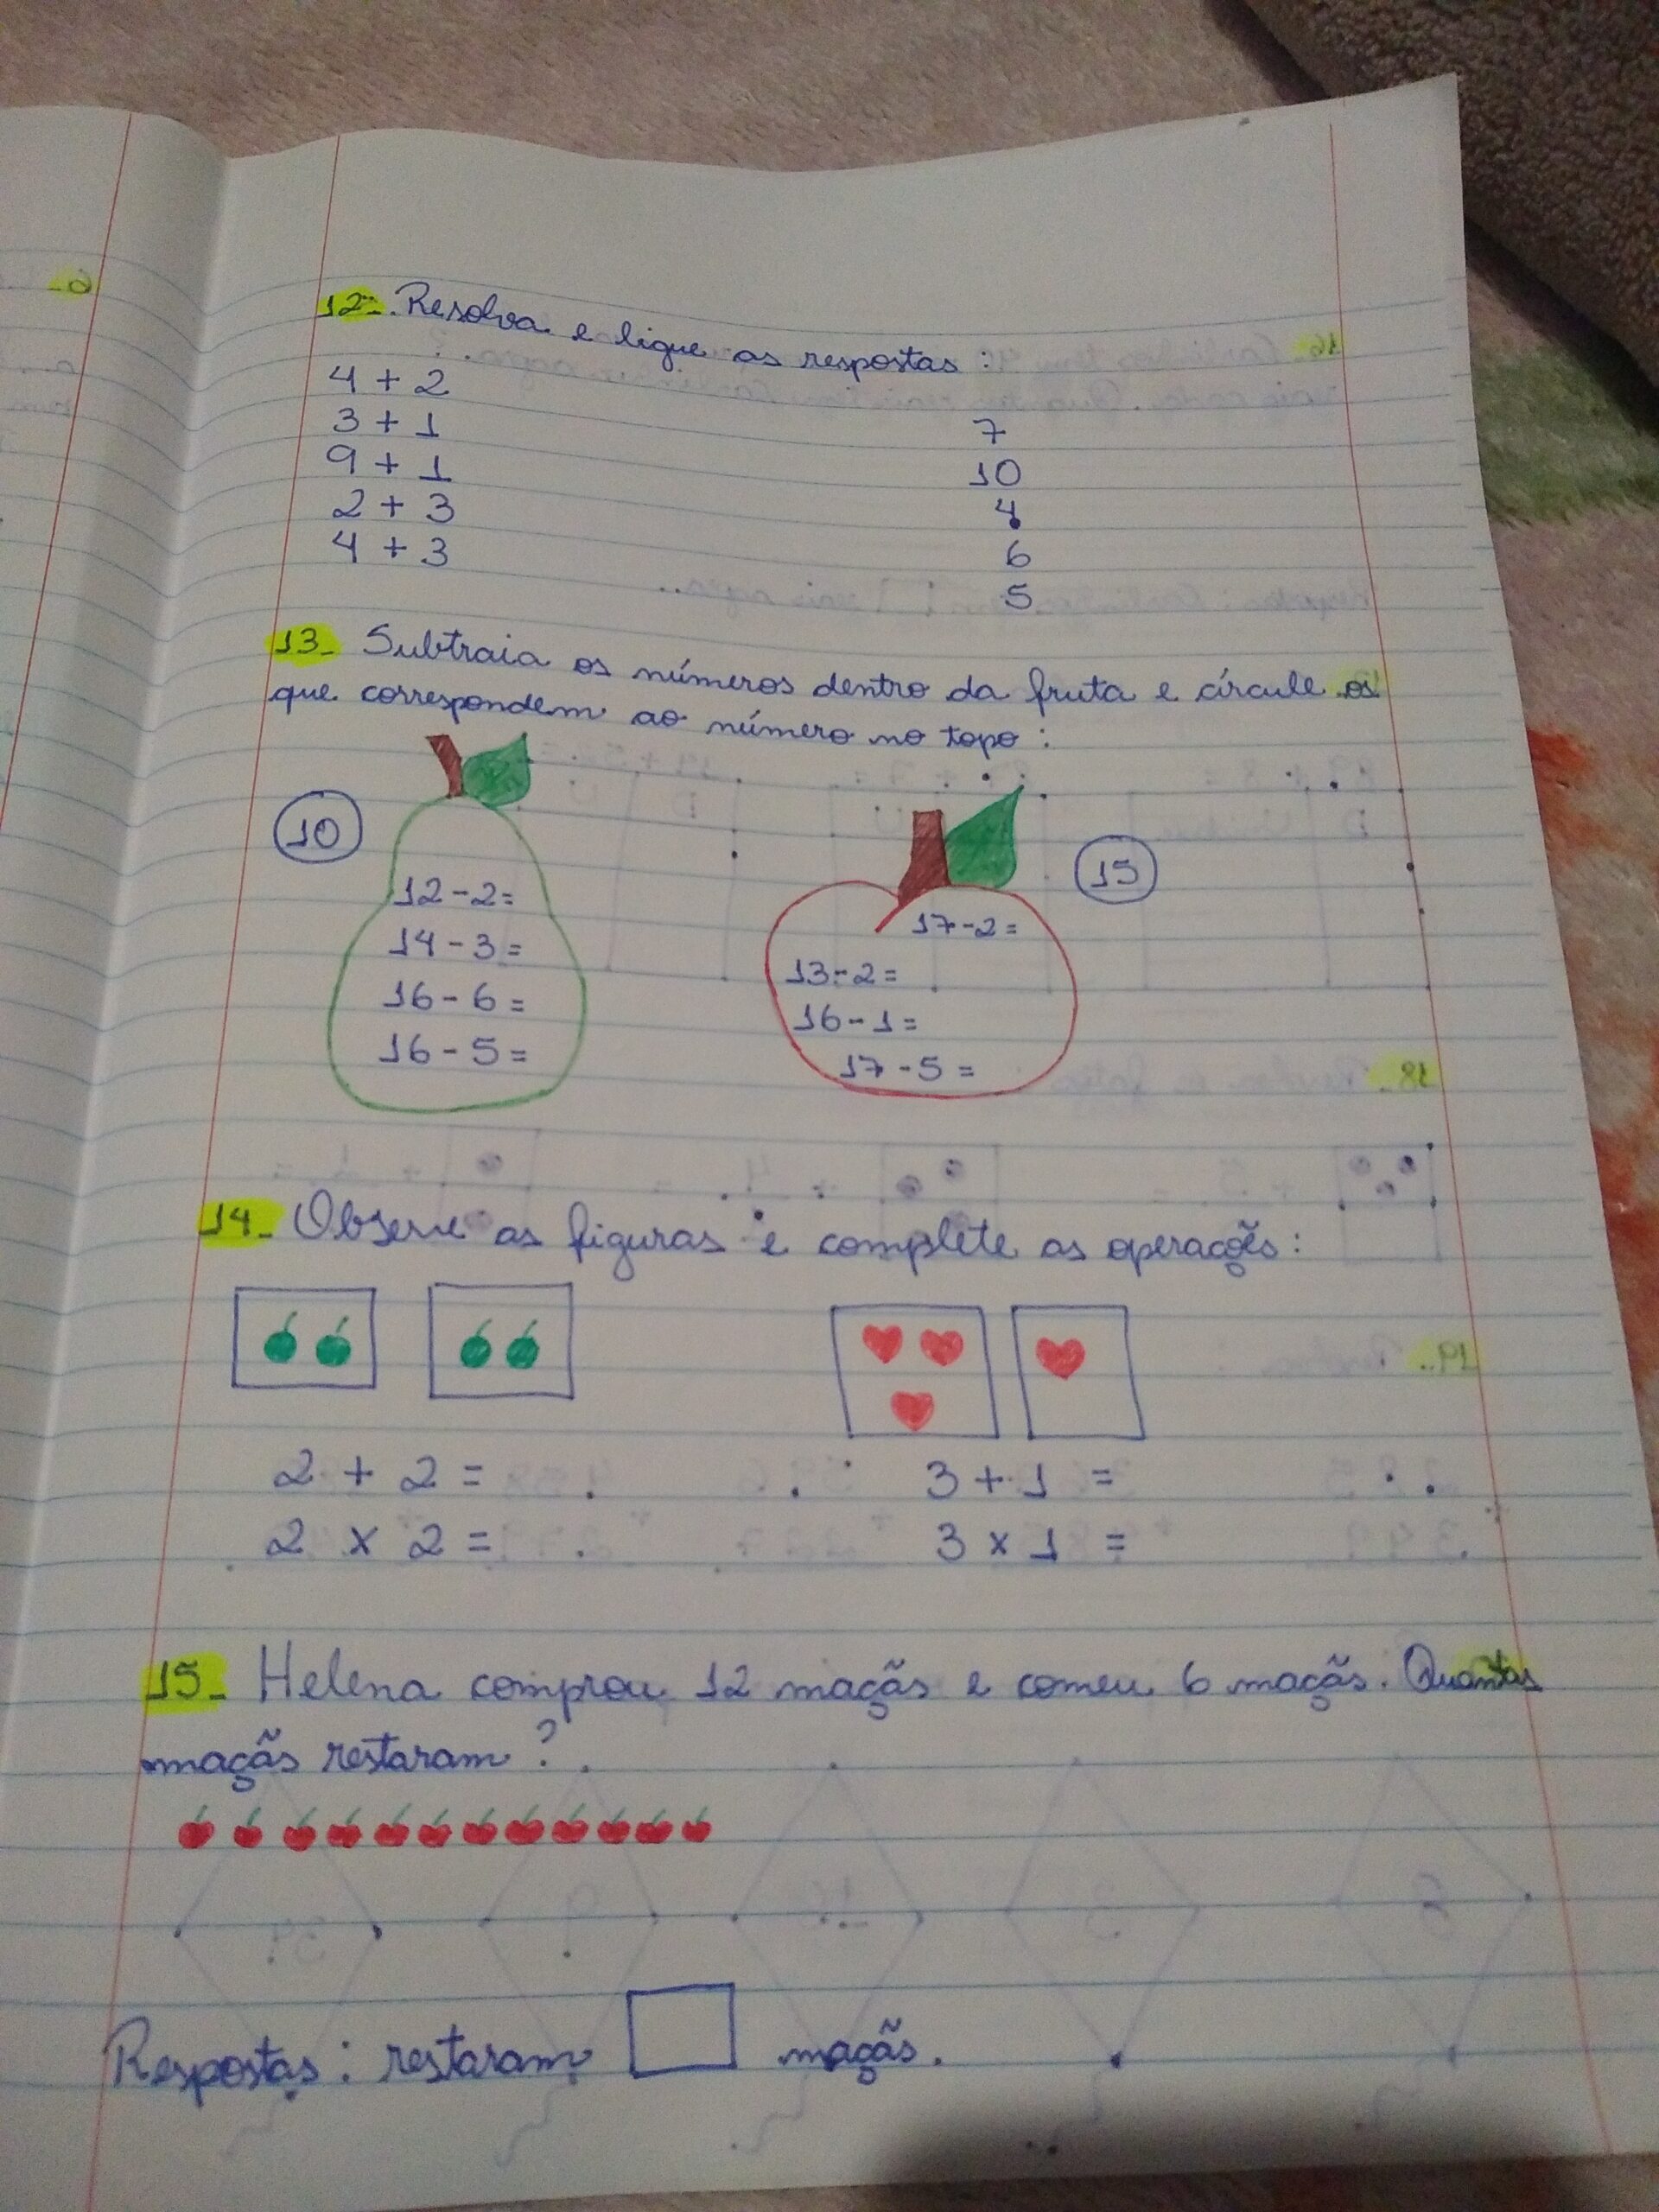 12-. Resolva e ligue as respostas :
4 + 2
3 + 1 7
9 + 1 10
2 + 3 4
4 + 3 6
5
13- Subtraia os números dentro da fruta e círcule os
que correspondem ao número no topo :
10
12-2=
14-3=
16-6=
16-5=
15
17-2=
13-2=
16-1=
17-5=
14- Observe as figuras e complete as operações :
2 + 2 =
2 x 2 =
3 + 1 =
3 x 1 =
15- Helena comprou 12 maçãs e comeu 6 maçãs. Quantas
maçãs restaram ?
Respostas : restaram maçãs.